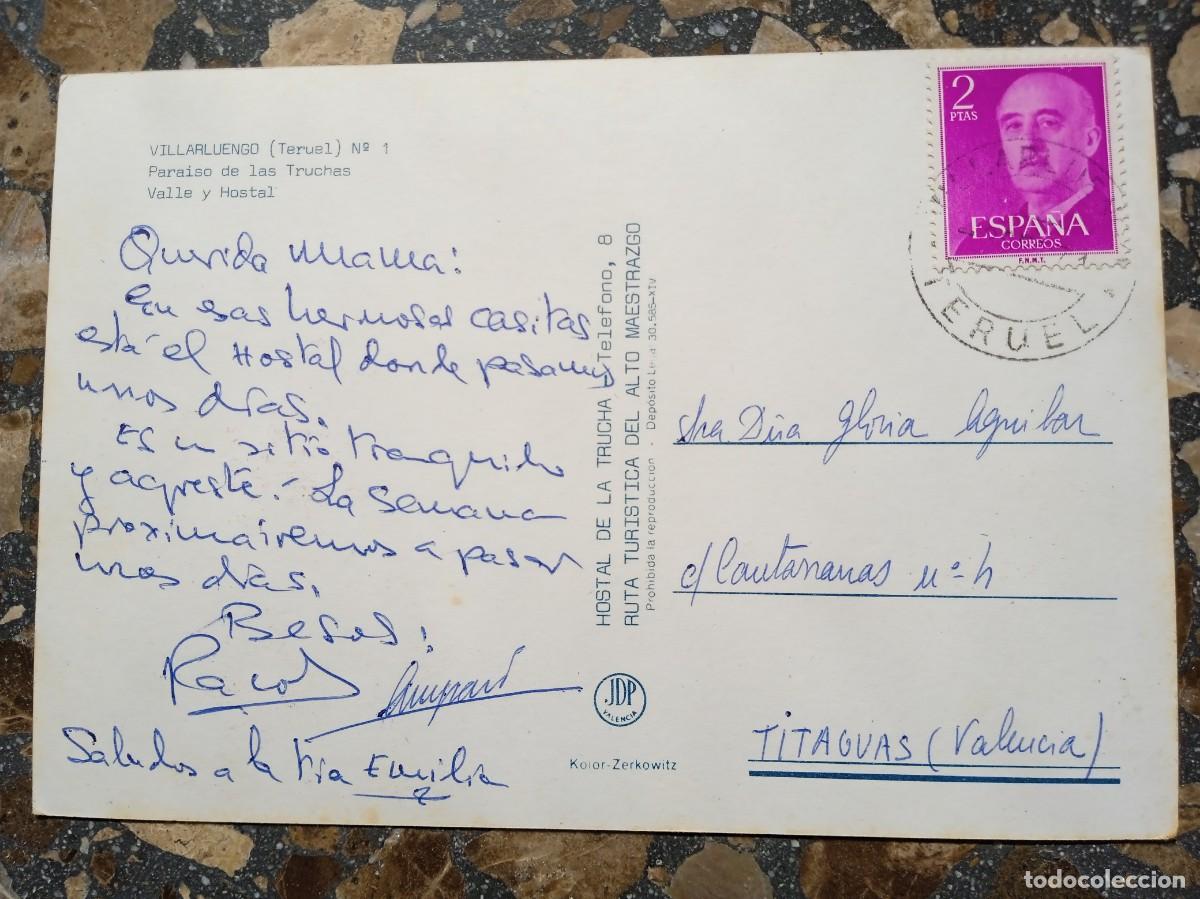 VILLARLUENGO (Teruel) Nº 1
Paraiso de las Truchas
Valle y Hostal
Querida Mama:
En esas hermosas casitas
está el Hostal donde pasamos
unos días.
Es un sitio tranquilo
y agreste.- La semana
proxima iremos a pasar
unos días.
Besos:
Amparo
Saludos a la tia Emilia
HOSTAL DE LA TRUCHA Telefono, 8
RUTA TURISTICA DEL ALTO MAESTRAZGO
Prohibida la reproducción - Depósito Legal 30.585-XIV
JDP
VALENCIA
Kolor-Zerkowitz
2
PTAS
ESPAÑA
CORREOS
F.N.M.T.
TERUEL
Sra Dña Gloria Aguilar
c/ Cantarranas nº 4
TITAGUAS (Valencia)
todocoleccion